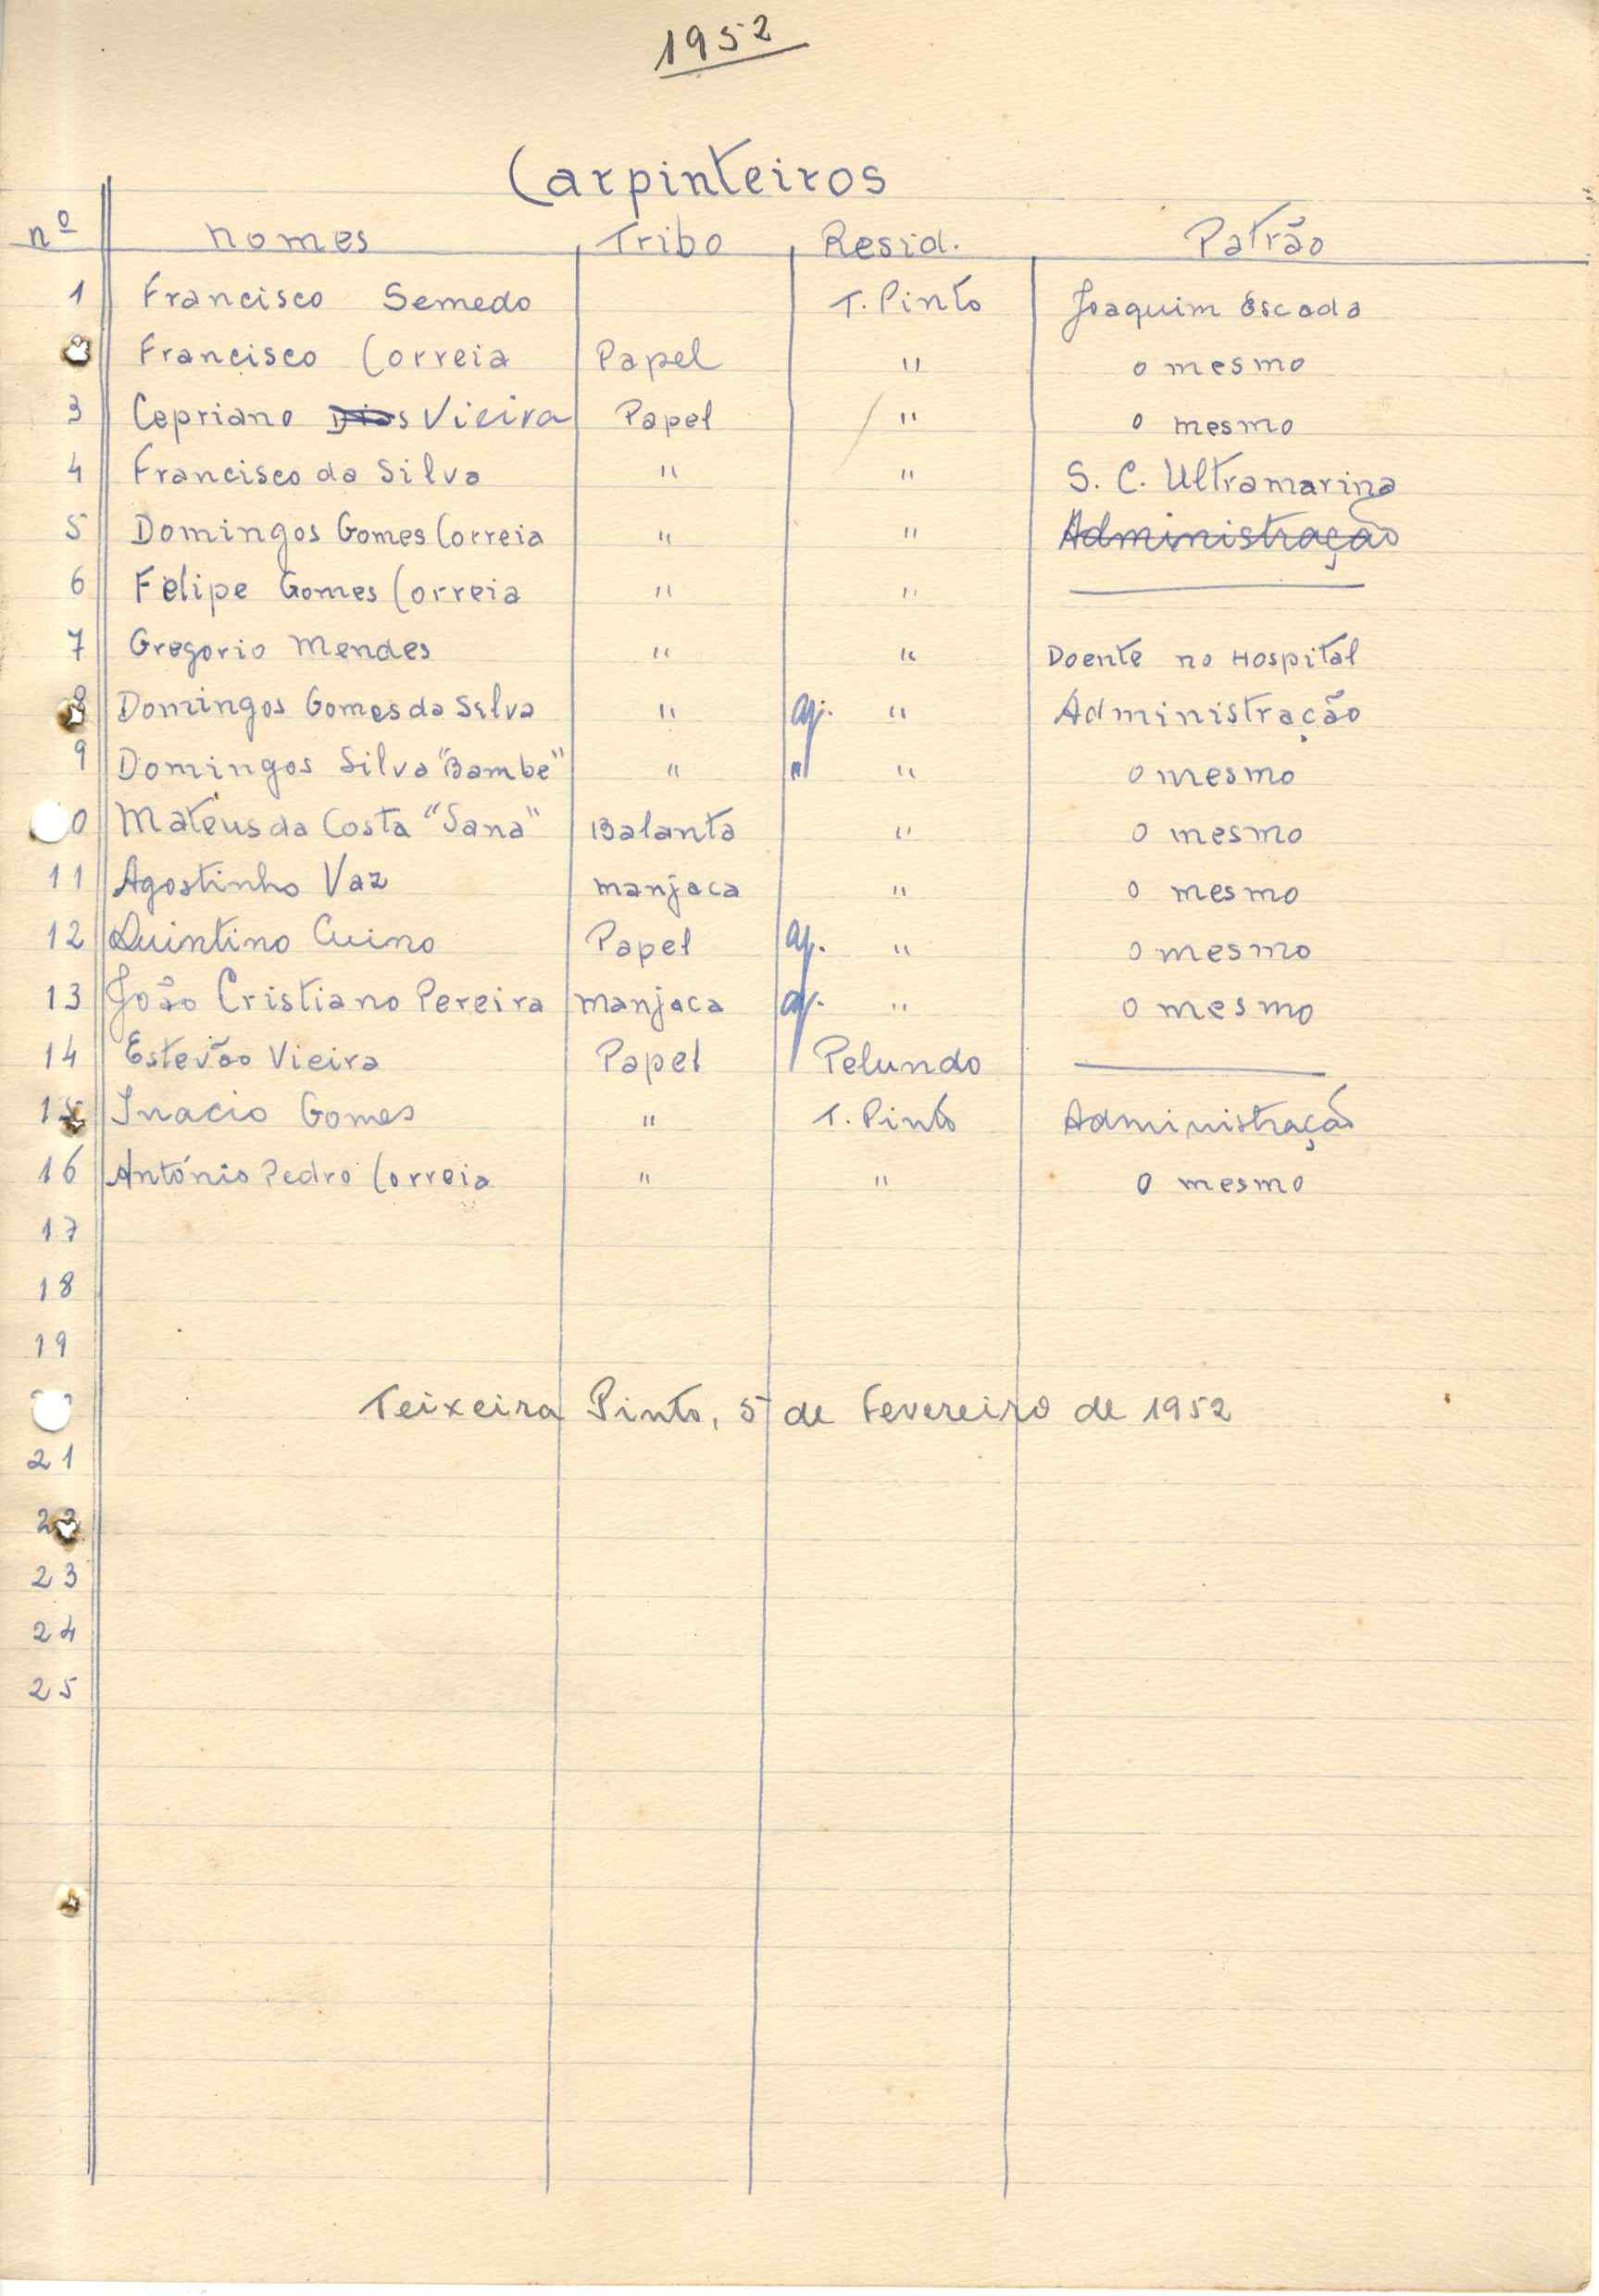 1952
Carpinteiros
nº nomes Tribo Resid. Patrão
1 Francisco Semedo T. Pinto Joaquim Escada
Francisco Correia Papel " o mesmo
3 Cepriano Dias Vieira Papel " o mesmo
4 Francisco da Silva " " S. C. Ultramarina
5 Domingos Gomes Correia " " Administração
6 Felipe Gomes Correia " "
7 Gregorio Mendes " " Doente no Hospital
8 Domingos Gomes da Silva " aj. " Administração
9 Domingos Silva "Bambe" " " " o mesmo
0 Mateus da Costa "Sana" Balanta " o mesmo
11 Agostinho Vaz manjaca " o mesmo
12 Quintino Cuino Papel aj. " o mesmo
13 João Cristiano Pereira manjaca aj. " o mesmo
14 Estevão Vieira Papel Pelundo
15 Inacio Gomes " T. Pinto Administração
16 António Pedro Correia " " o mesmo
17
18
19
Teixeira Pinto, 5 de Fevereiro de 1952
21
22
23
24
25